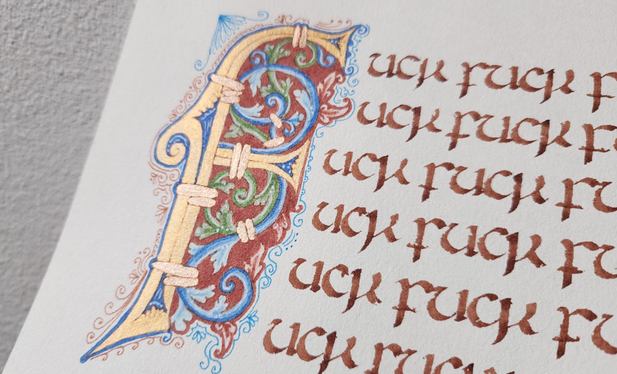 Fuck fuck f
uck fuck fu
uck fuck fu
uck fuck fu
uck fuck fu
uck fuck